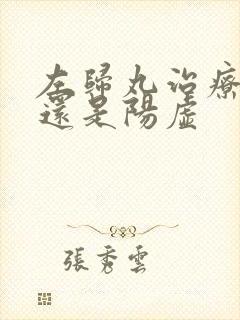 左歸丸治療
還是陽虛
張秀雲